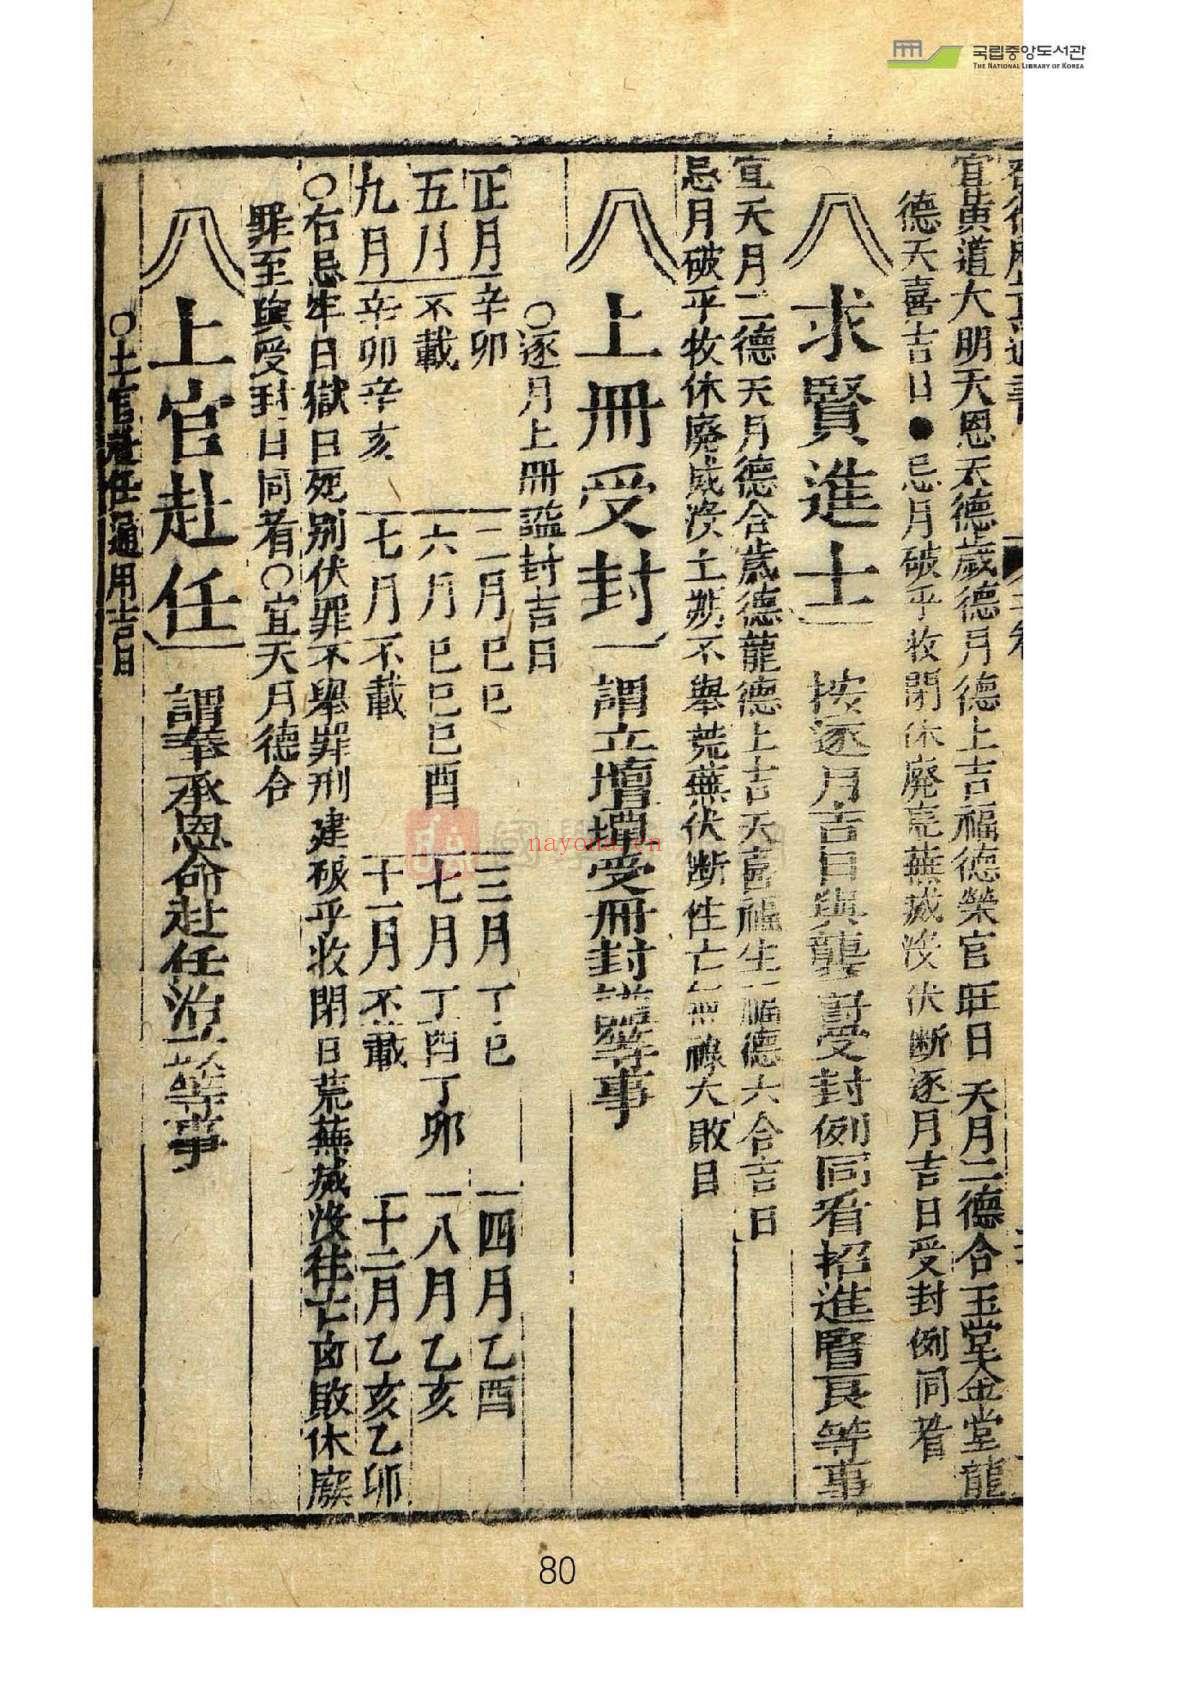 국립중앙도서관
THE NATIONAL LIBRARY OF KOREA
宜黃道大明天恩天德歲德月德上吉福德榮官旺日天月二德合玉堂金堂龍
德天喜吉日●忌月破平收閉休廢荒蕪滅没伏斷逐月吉日受封例同看
八求賢進士 按逐月吉日與襲爵受封例同看招進賢良等事
宜天月二德天月德合歲德龍德上吉天喜福生福德六合吉日
忌月破平收休廢滅没土瘟不舉荒蕪伏斷往亡無祿大敗日
八上冊受封 謂立壇墠受冊封謚等事
○逐月上冊謚封吉日
正月辛卯 二月己巳 三月丁巳 四月乙酉
五月不載 六月 七月丁酉丁卯 八月乙亥
九月辛卯辛亥 七月不載 十一月不載 十二月乙亥乙卯
○右忌牢日獄日死别伏罪不舉罪刑建破平收閉日荒蕪滅没往亡凶敗休廢
罪至與受封日同看○宜天月德合
八上官赴任 謂奉承恩命赴任治政等事
○上官赴任通用吉日
國學
nayona.cn
80